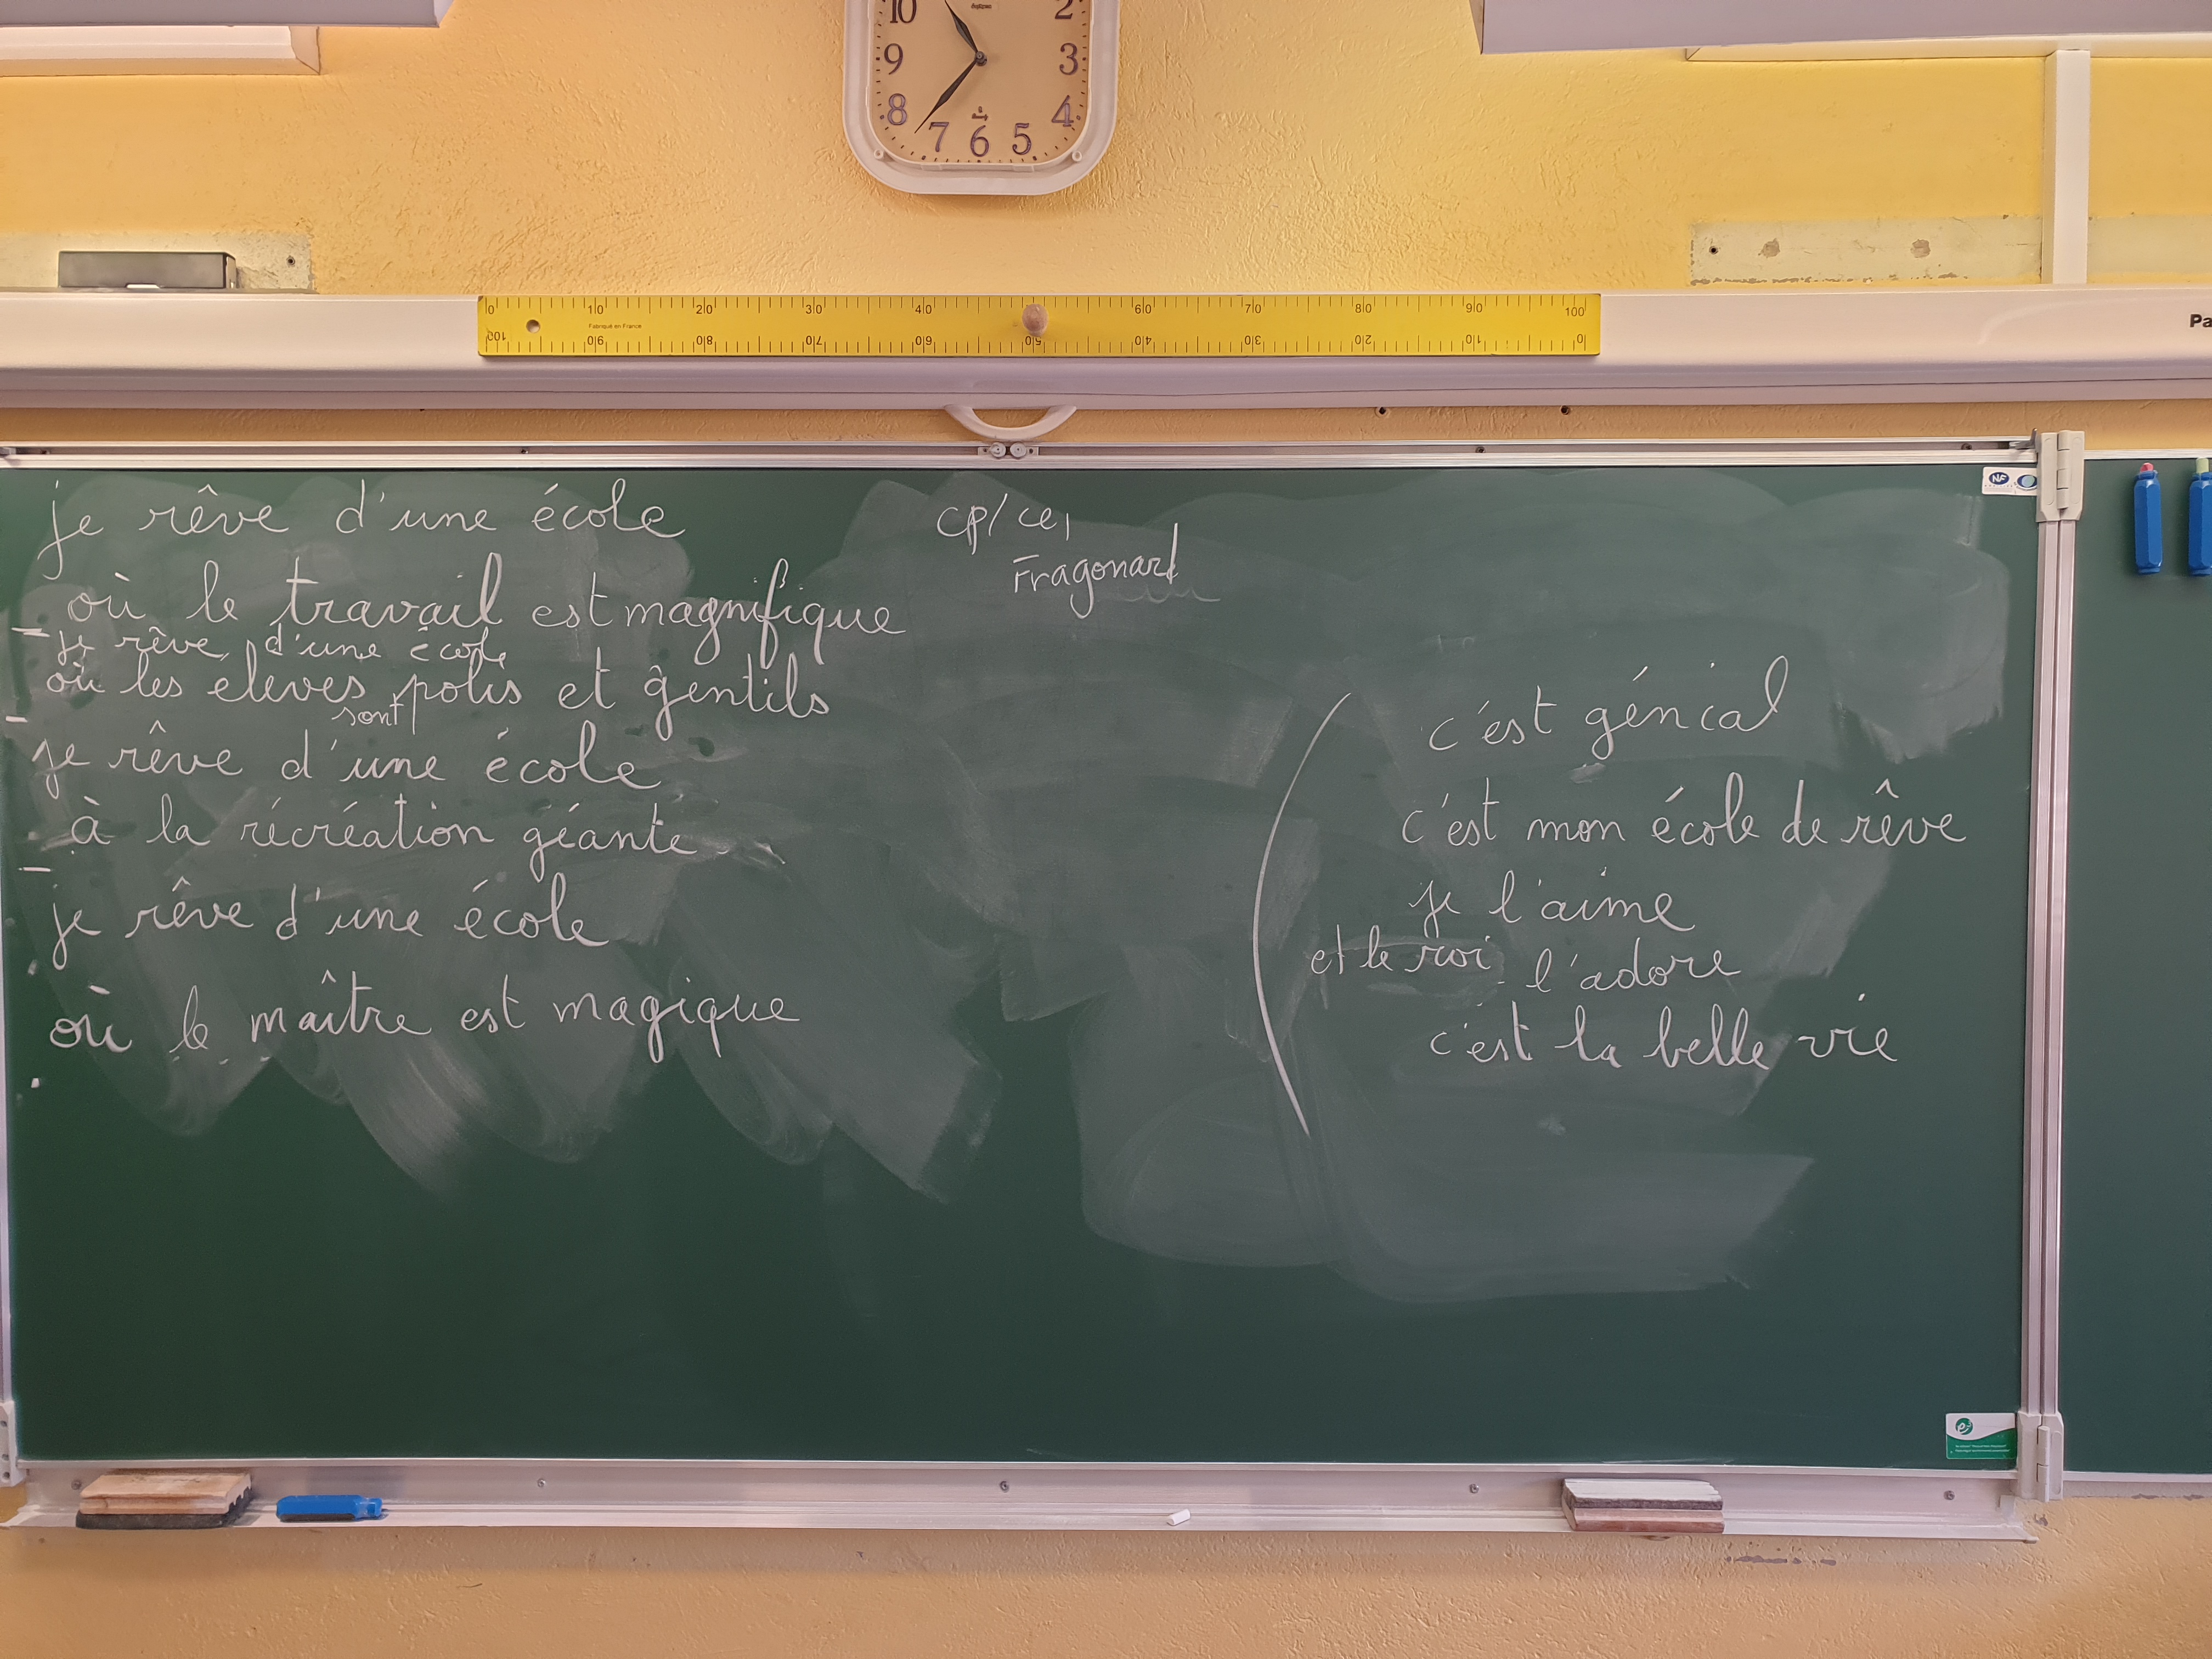 10 2
9 3
8 4
7 6 5
0 10 20 30 40 60 70 80 90 100
Fabriqué en France
100 90 80 70 60 50 40 30 20 10 0
Pa
NF
je rêve d'une école
où le travail est magnifique
je rêve d'une école
où les élèves polis et gentils
sont
je rêve d'une école
à la récréation géante
je rêve d'une école
où le maître est magique
CP/CE1
Fragonard
c'est génial
c'est mon école de rêve
je l'aime
et le roi l'adore
c'est la belle vie